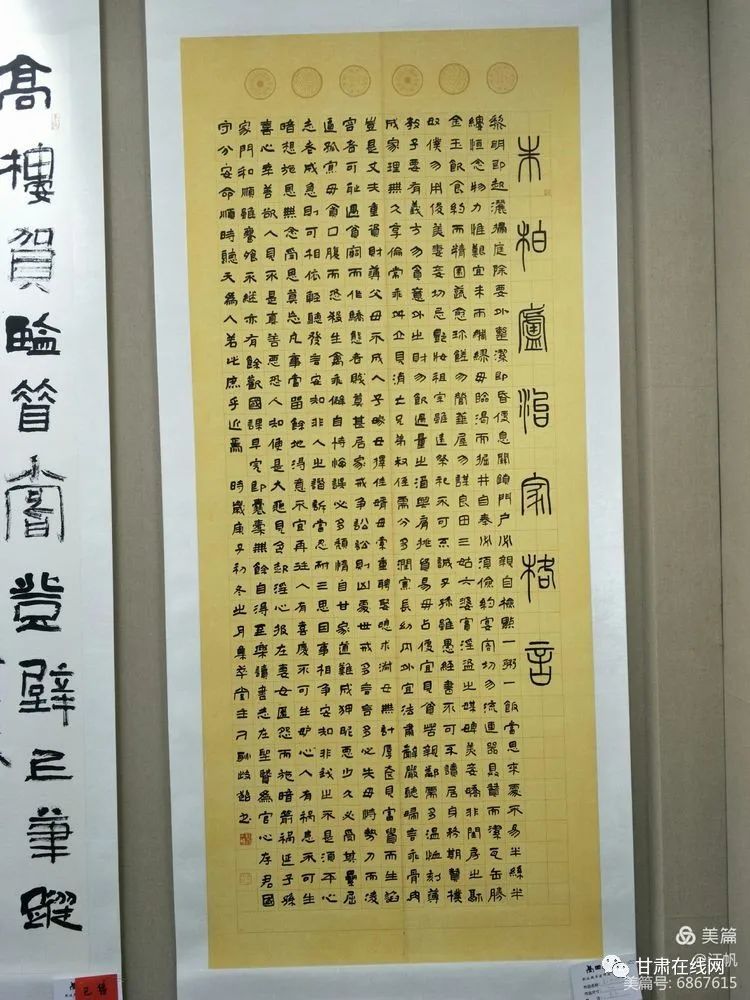 朱柏廬治家格言
黎明即起灑掃庭除要外整潔即昏便息關鎖門戶必親自檢點一粥一飯當思來處不易半絲半
縷恒念物力惟艱宜未雨綢繆毋臨渴而掘井自奉必須儉約宴客切勿流連器具質而潔瓦缶勝
金玉飲食約而精園蔬愈珍饈勿營華屋勿謀良田三姑六婆實淫盜之媒婢美妾嬌非閨房之福
奴僕勿用俊美妻妾切忌艷妝祖宗雖遠祭祀不可不誠子孫雖愚經書不可不讀居身務期質樸
教子要有義方勿貪意外之財勿飲過量之酒與肩挑貿易毋占便宜見貧苦親鄰需多溫恤刻薄
成家理無久享倫常乖舛立見消亡兄弟叔侄需分多潤寡長幼內外宜法肅辭嚴聽婦言乖骨肉
豈是丈夫重資財薄父母不成人子嫁女擇佳婿毋索重聘娶媳求淑女無計厚奩見富貴而生諂
容者可恥遇貧窮而作驕態者賤莫甚居家戒爭訟訟則凶處世戒多言言多必失毋恃勢力而凌
逼孤寡毋貪口腹而恣殺生禽乖僻自恃悔誤必多頹惰自甘家道難成狎昵惡少久必受其累屈
志老成急則可相依輕聽發言安知非人之譖訴當忍耐三思因事相爭安知非我之不是須平心
暗想施恩無念受恩莫忘凡事當留餘地得意不宜再往人有喜慶不可生妒心人有禍患不可生
喜心善欲人見不是真善惡恐人知便是大惡見色起淫心報在妻女匿怨而施暗箭禍延子孫
家門和順雖饔飧不繼亦有餘歡國課早完即囊橐無餘自得至樂讀書志在聖賢為官心存君國
守分安命順時聽天為人若此庶乎近焉 時歲庚子初冬之月
高樓賀監昔曾登壁上筆蹤
已售
美篇
@江帆
甘肃在线网
美篇号: 6867615